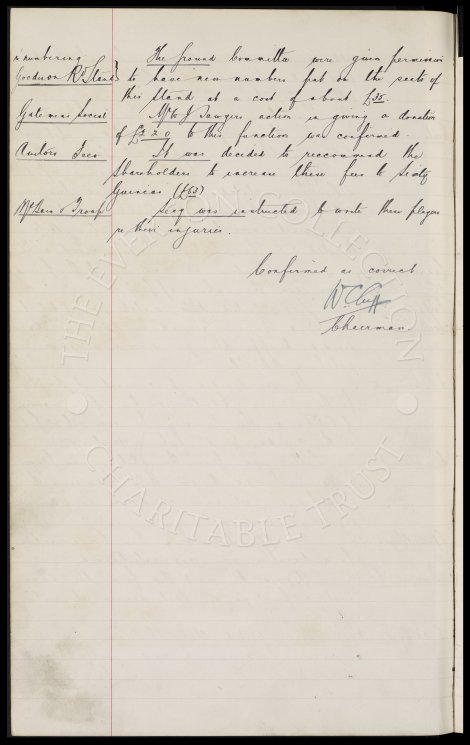 numbering
Goodison Rd Stand
The Ground Committee were given permission
to have new numbers put on the seats of
this Stand at a cost of about £35.
Gatemens Social
Mr W J Sawyers action in giving a donation
of £2 2 0 to this function was confirmed.
Auditors Fees
It was decided to reccommend the
Shareholders to increase these fees to Sixty
Guineas (£63)
McBain & Troup
Secy was instructed to write these players
re their injuries.
Confirmed as correct
W. C. Cuff
Chairman
THE EVERTON COLLECTION
CHARITABLE TRUST